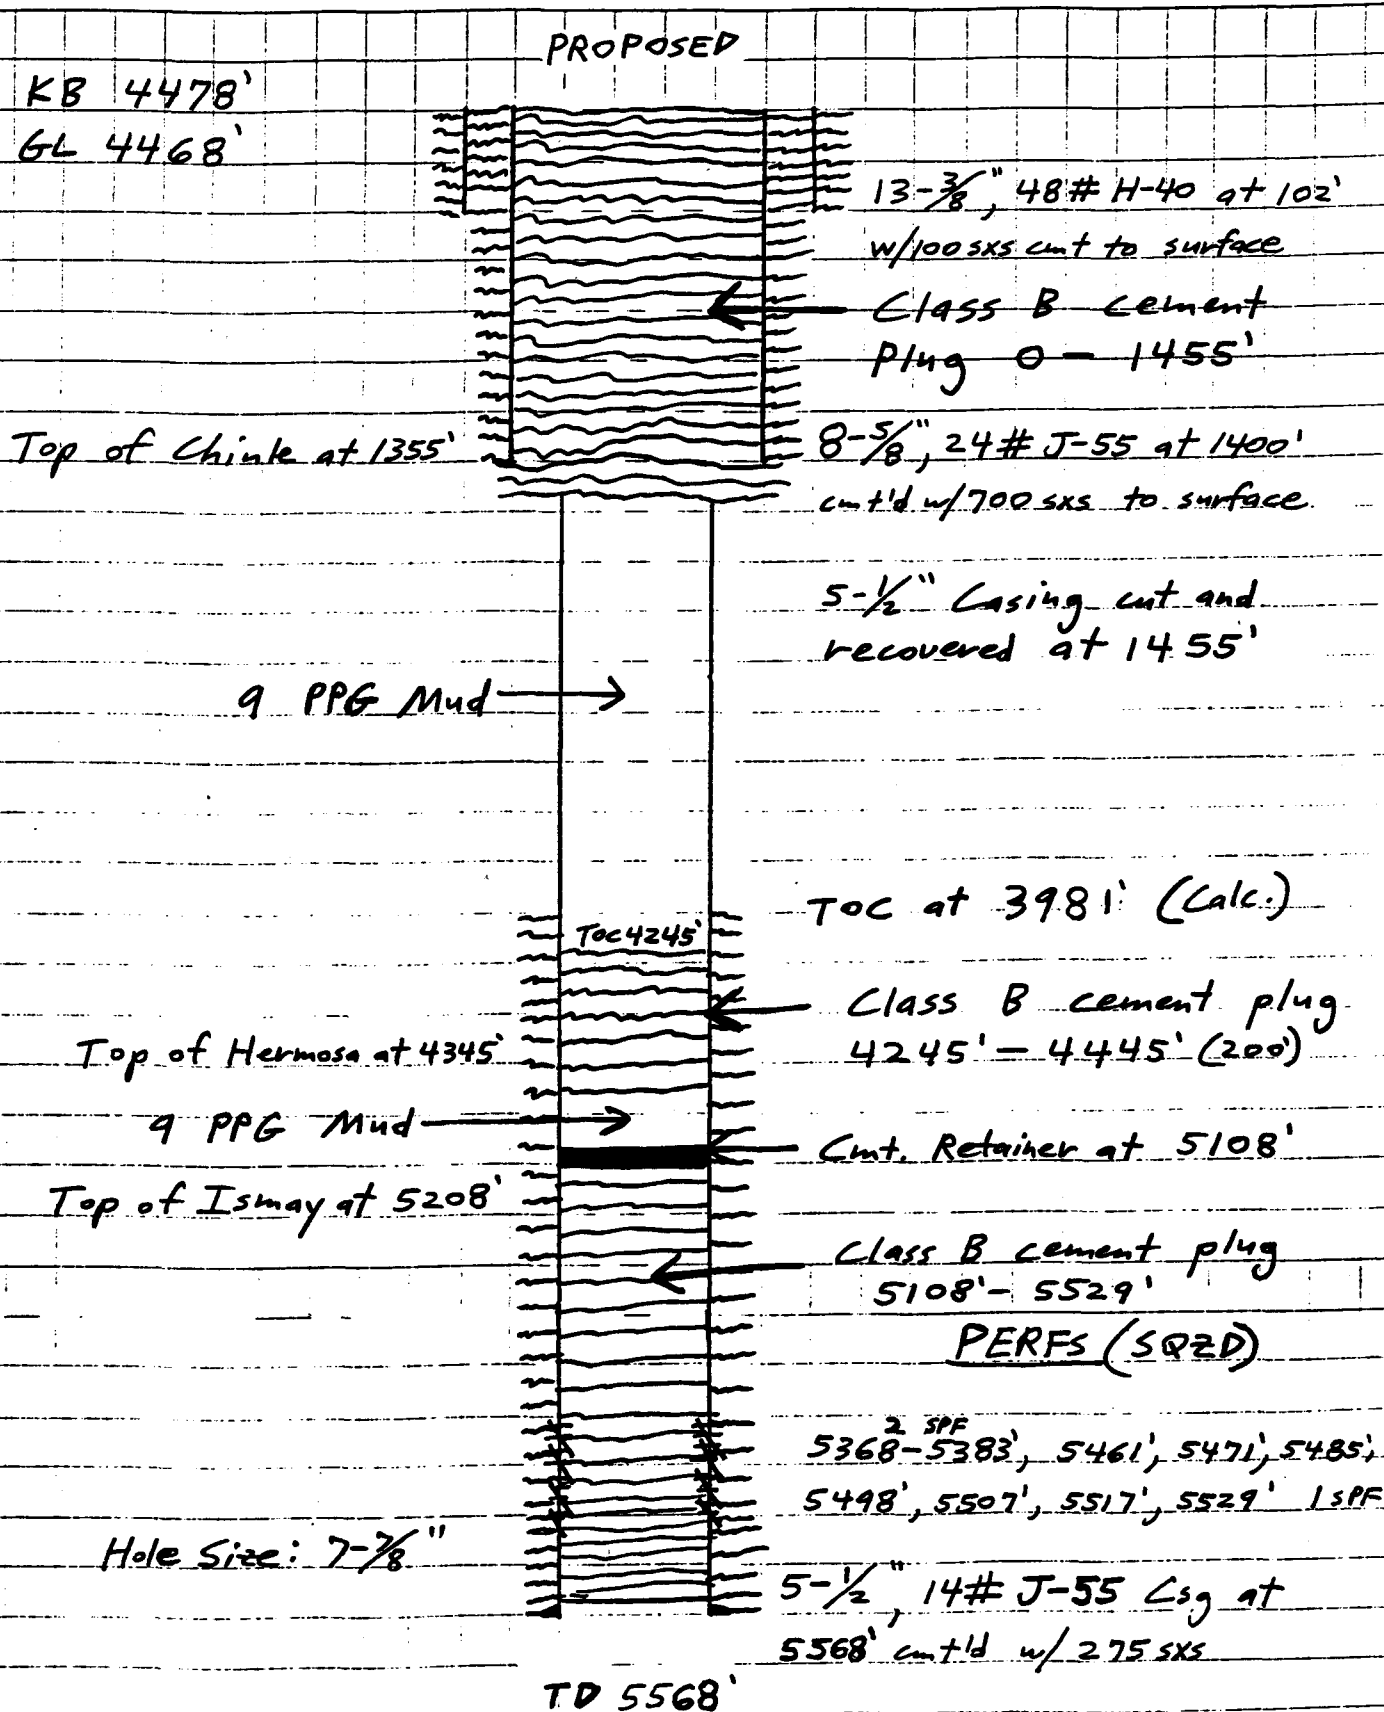 PROPOSED
KB 4478'
GL 4468'
13-3/8", 48# H-40 at 102'
w/100 sxs cmt to surface
Class B cement
Plug 0 - 1455'
Top of Chinle at 1355'
8-5/8", 24# J-55 at 1400'
cmt'd w/700 sxs to surface
5-1/2" Casing cut and
recovered at 1455'
9 PPG Mud
TOC at 3981' (Calc.)
TOC 4245'
Class B cement plug
4245' - 4445' (200')
Top of Hermosa at 4345'
9 PPG Mud
Cmt. Retainer at 5108'
Top of Ismay at 5208'
Class B cement plug
5108' - 5529'
PERFS (SQZD)
2 SPF
5368-5383', 5461', 5471', 5485',
5498', 5507', 5517', 5529' 1 SPF
Hole Size: 7-7/8"
5-1/2", 14# J-55 Csg at
5568' cmt'd w/ 275 sxs
TD 5568'